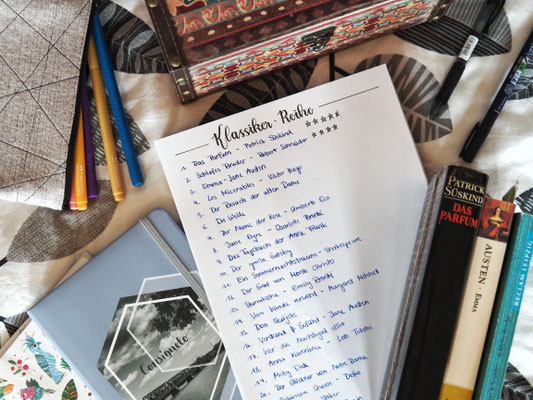 Klassiker-Reihe
1. Das Parfum - Patrick Süskind ☆☆☆☆☆
2. Schlafes Bruder - Robert Schneider ☆☆☆☆
3. Emma - Jane Austen
4. Les Misérables - Viktor Hugo
5. Der Besuch der alten Dame
6. Die Welle
7. Der Name der Rose - Umberto Eco
8. Jane Eyre - Charlotte Brontë
9. Das Tagebuch der Anne Frank
10. Der große Gatsby
11. Ein Sommernachtstraum - Shakespeare
12. Der Graf von Monte Christo
13. Sturmhöhe - Emily Brontë
14. Vom Winde verweht - Margaret Mitchell
15. Don Quijote
16. Verstand & Gefühl - Jane Austen
17. Wer die Nachtigall stört
18. Anna Karenina - Leo Tolstoi
19. Moby Dick
20. Der Glöckner von Notre Dame
Robinson Crusoe - Defoe
Stoker
Consuelo
PATRICK SÜSKIND
DAS PARFUM
AUSTEN · EMMA
RECLAM LEIPZIG